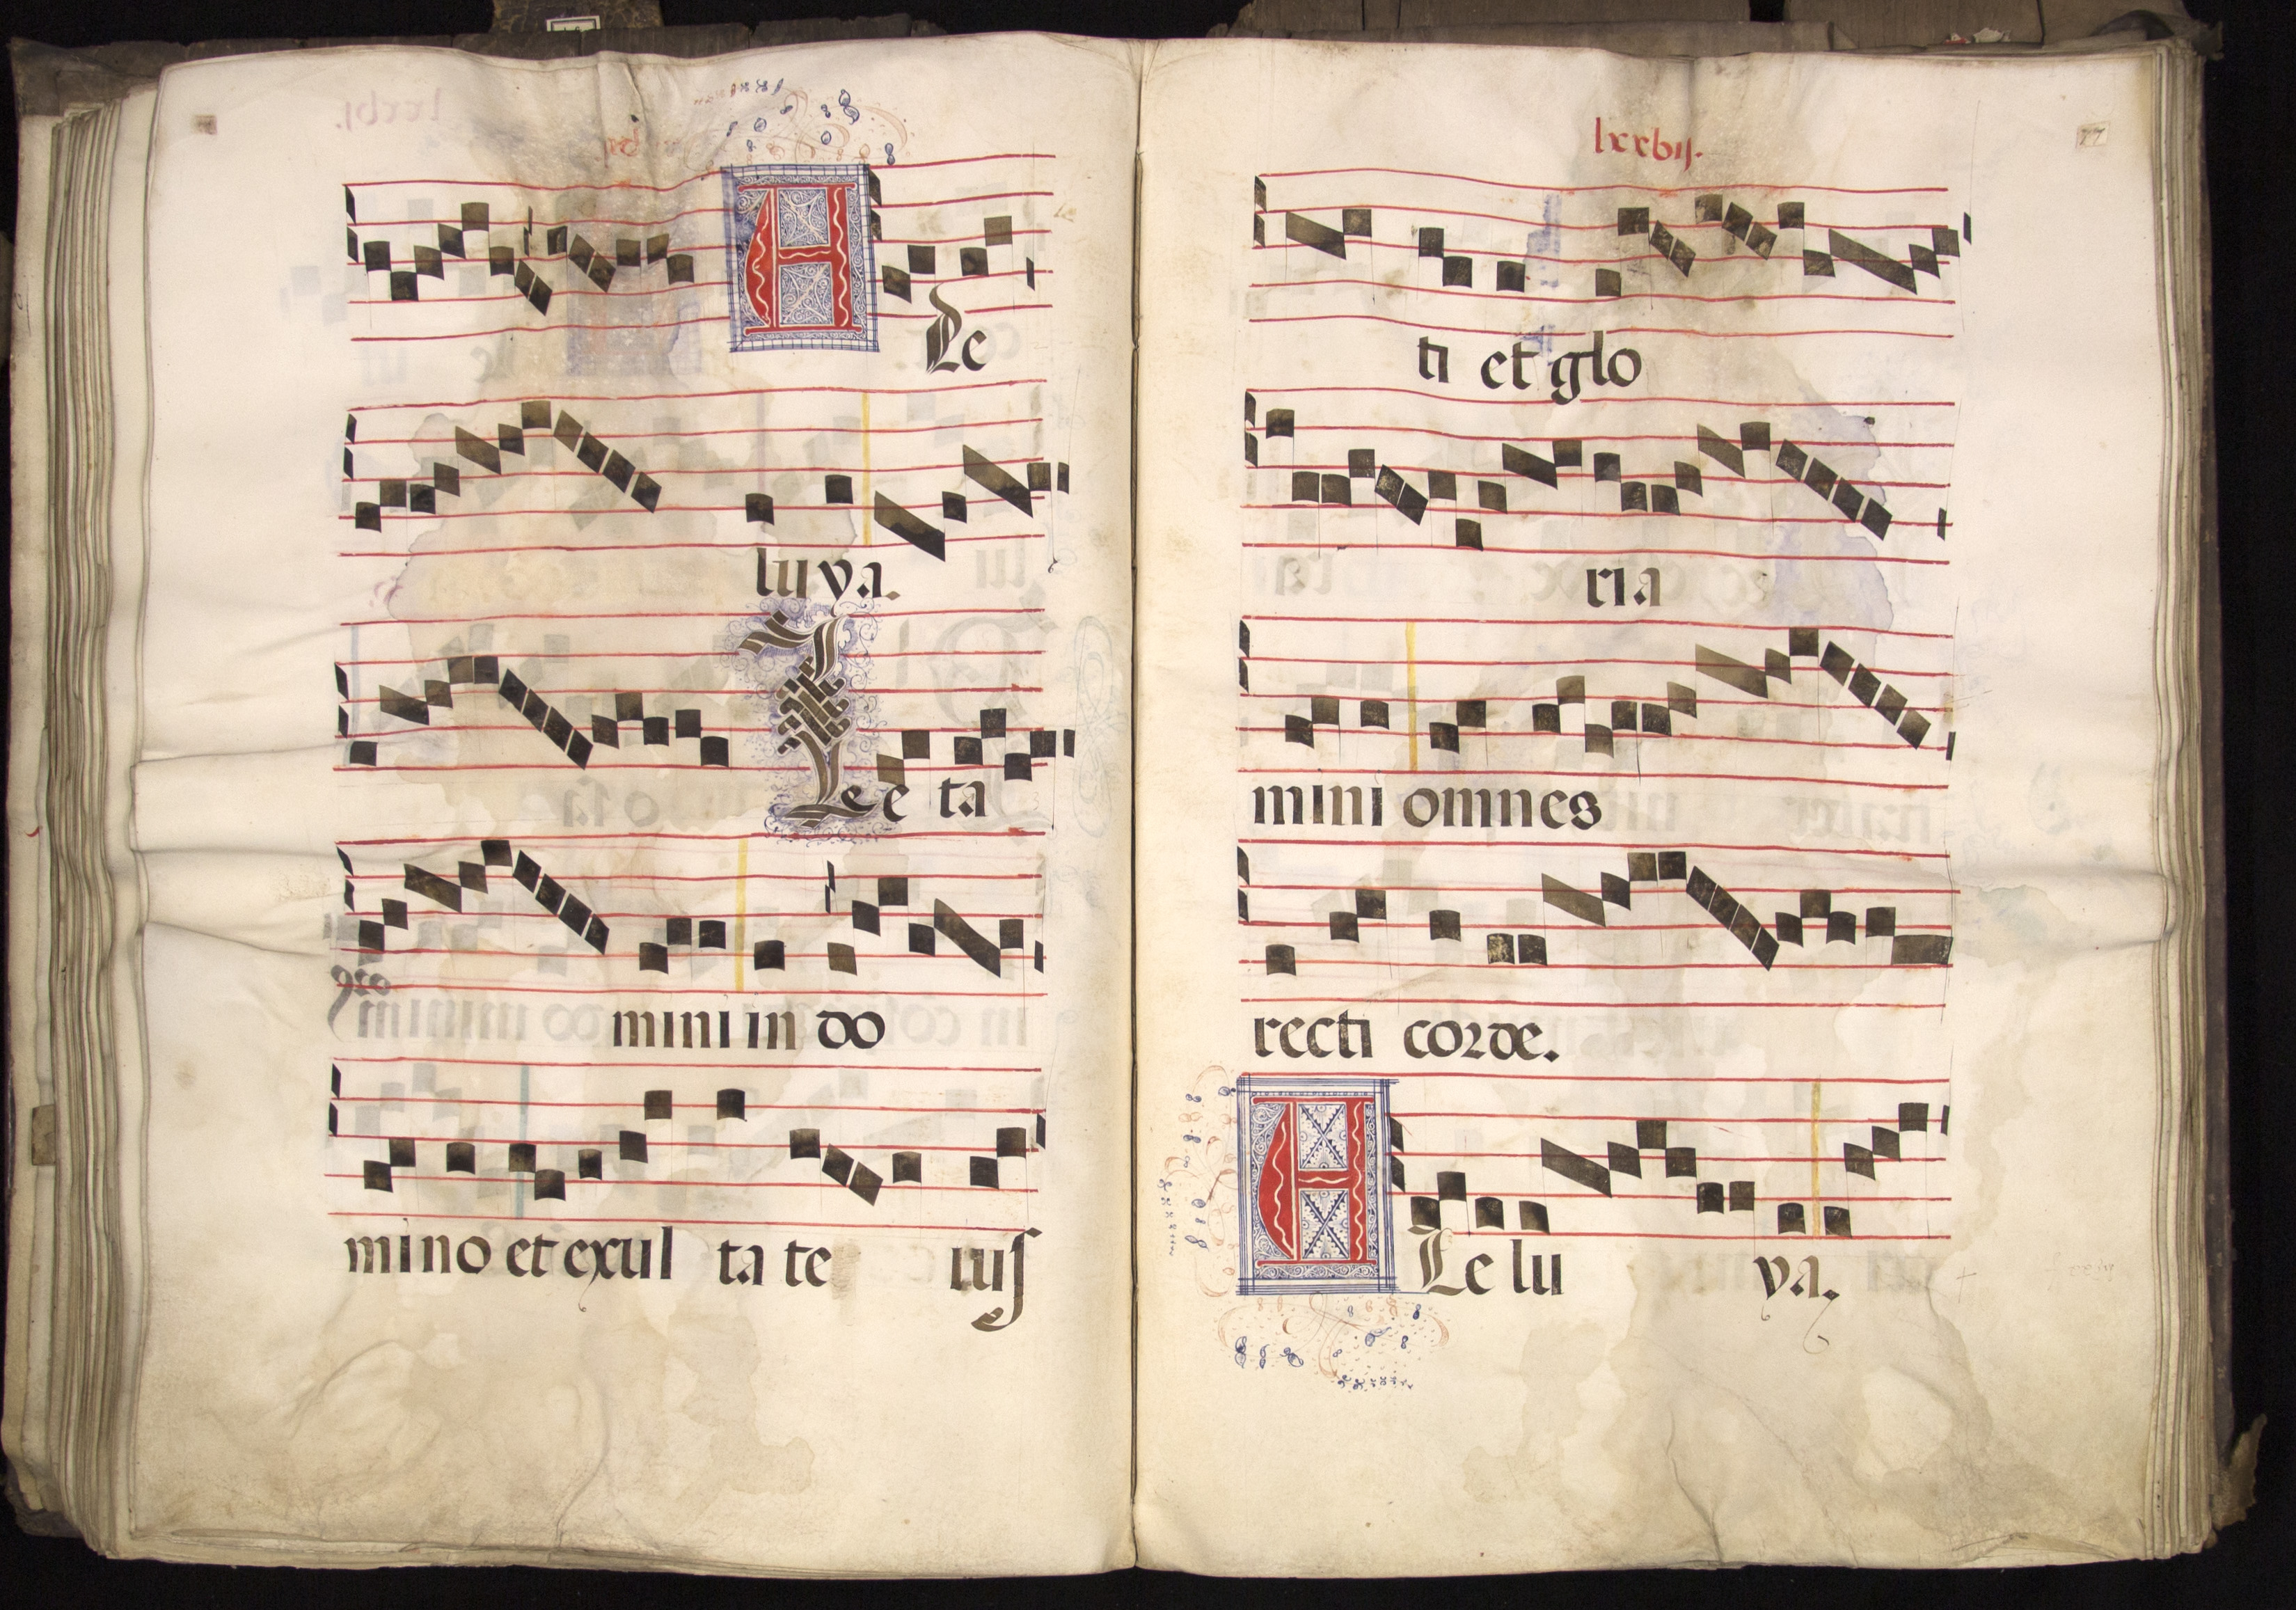 A Le
lu ya.
Le e ta
mini in do
mino et exul ta te ius
lxxbij.
77
ti et glo
ria
mini omnes
recti corde.
A Le lu ya.